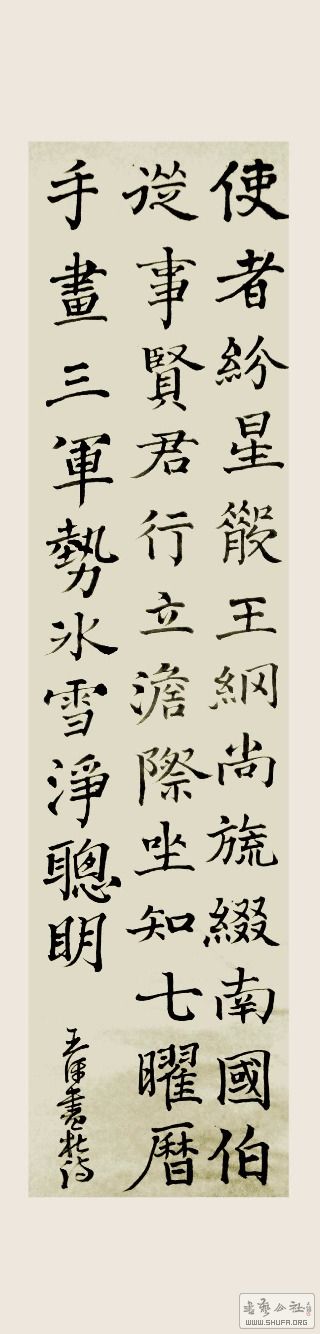 使者紛星散王綱尚旒綴南國伯
從事賢君行立澹際坐知七曜曆
手畫三軍勢冰雪淨聰明
王書杜诗
書藝公社
WWW.SHUFA.ORG